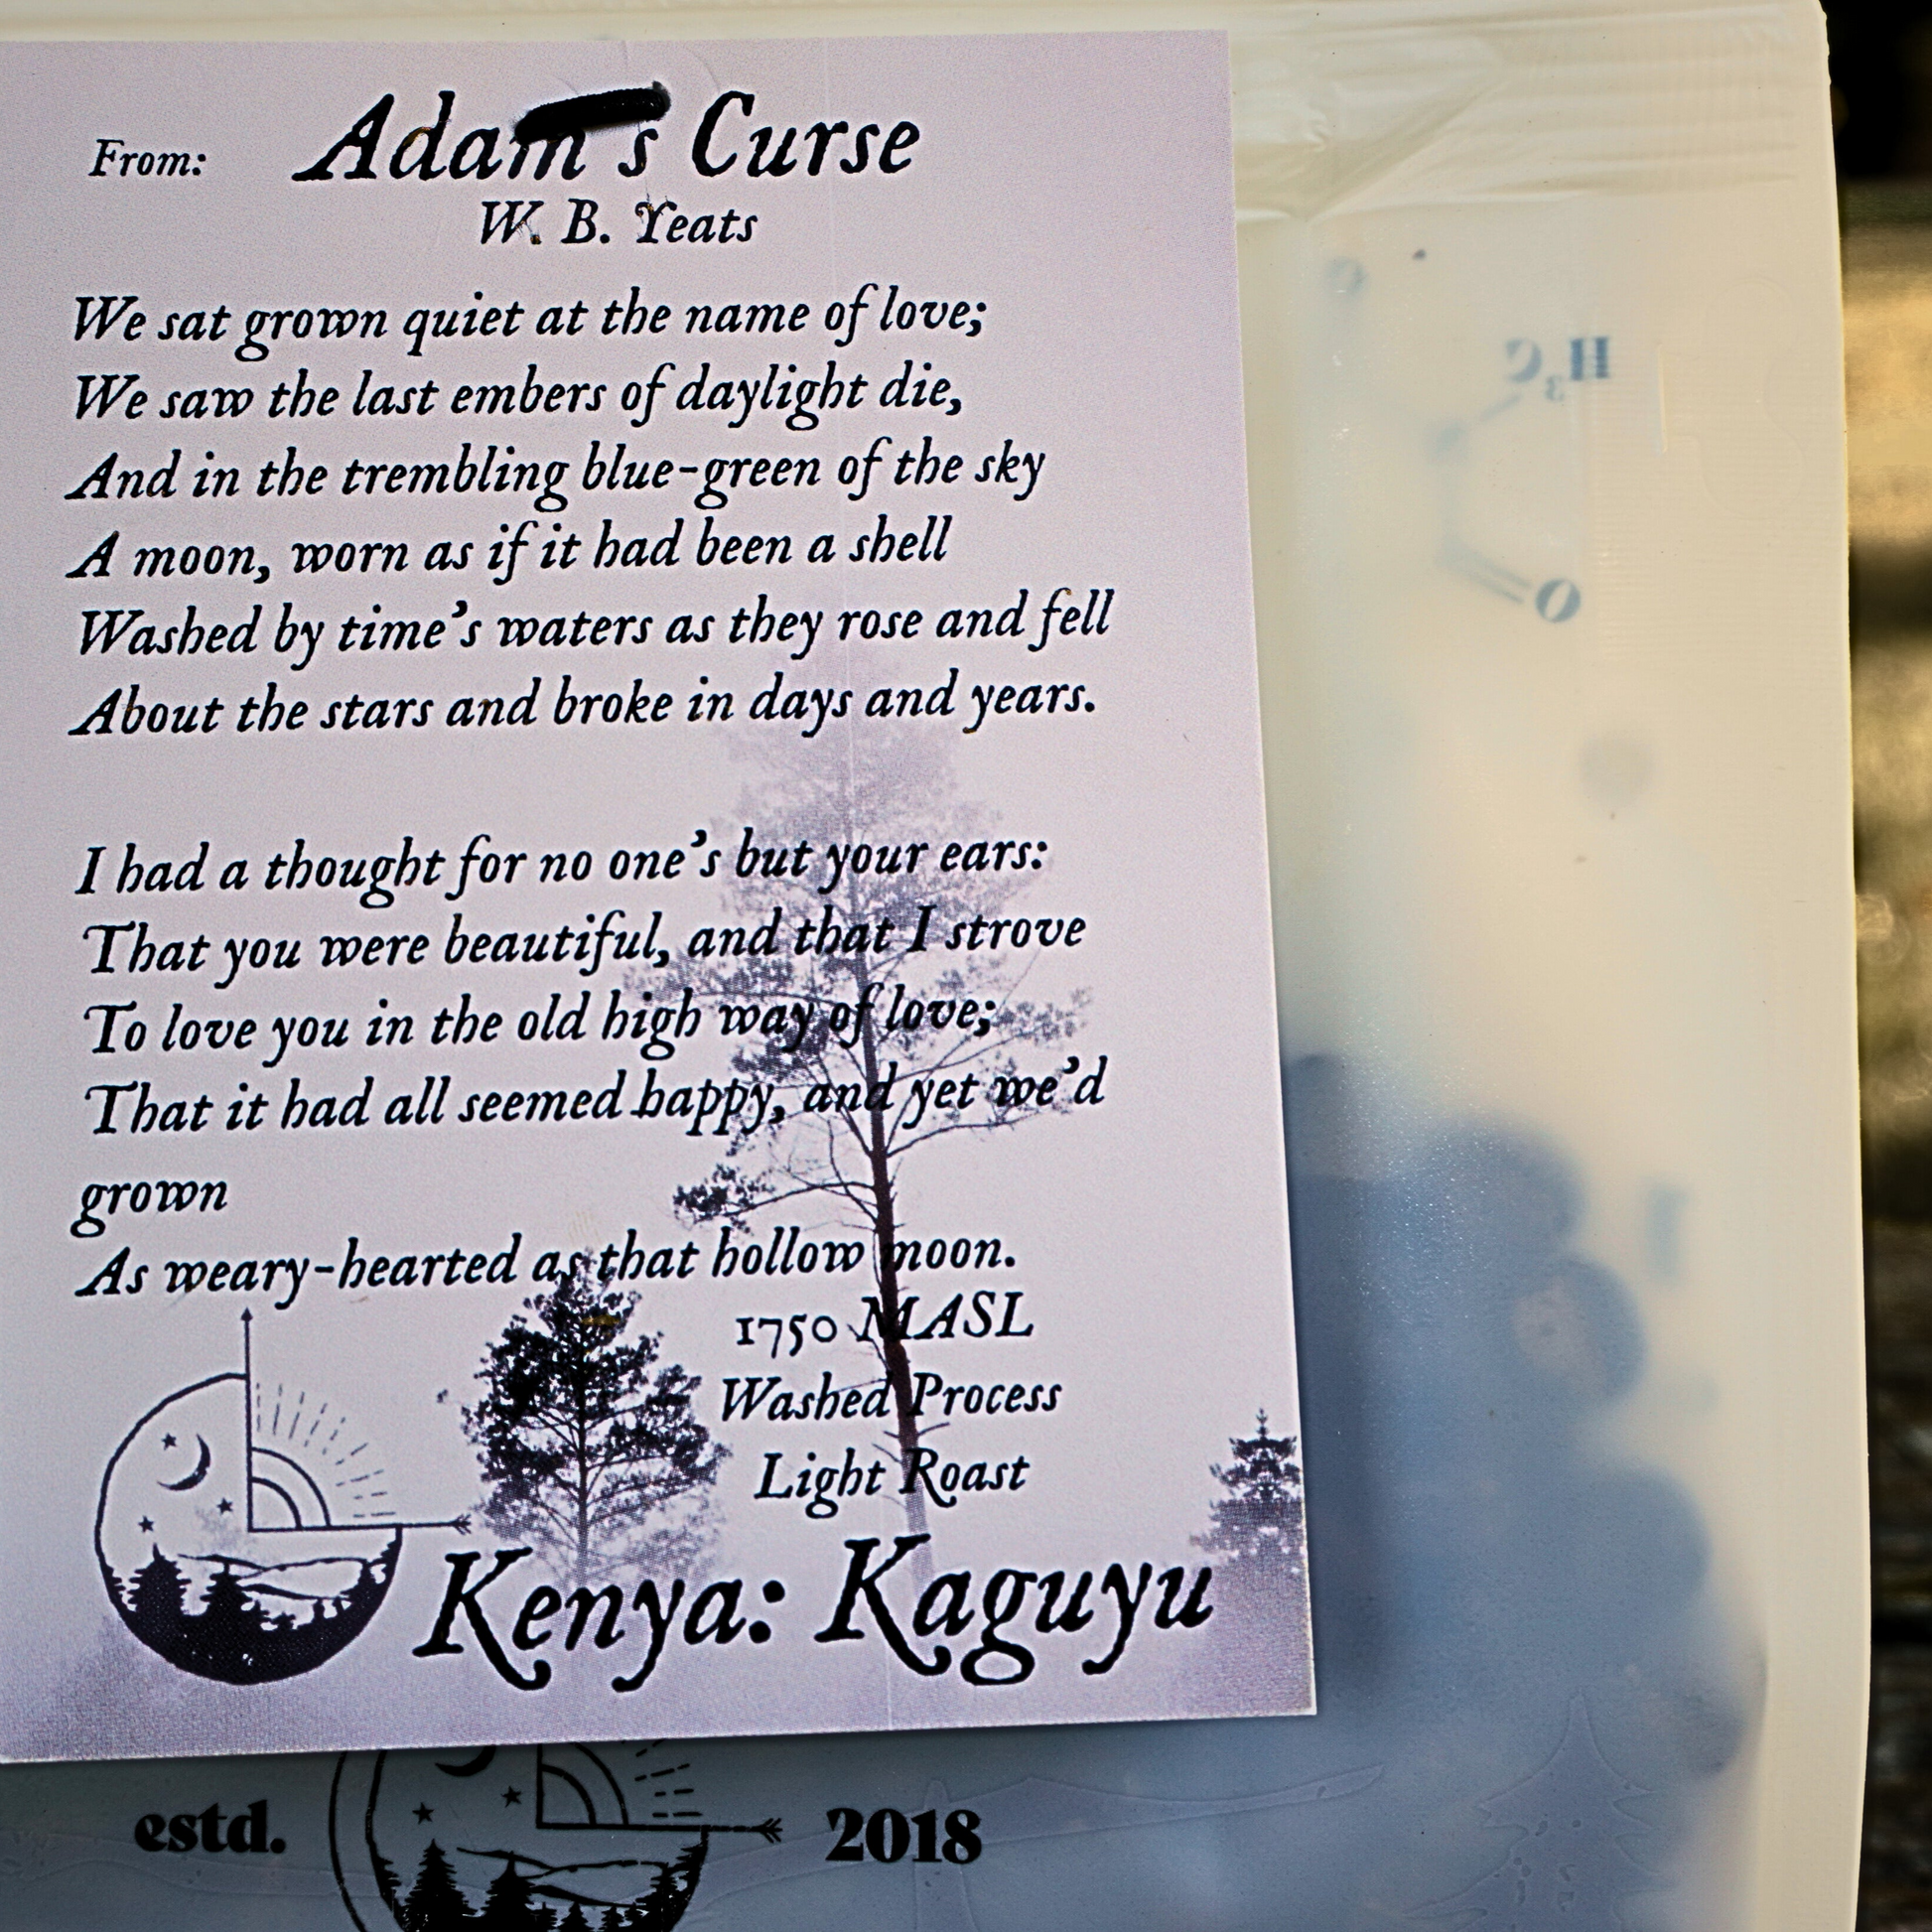 From: Adam's Curse
W. B. Yeats
We sat grown quiet at the name of love;
We saw the last embers of daylight die,
And in the trembling blue-green of the sky
A moon, worn as if it had been a shell
Washed by time's waters as they rose and fell
About the stars and broke in days and years.
I had a thought for no one's but your ears:
That you were beautiful, and that I strove
To love you in the old high way of love;
That it had all seemed happy, and yet we'd
grown
As weary-hearted as that hollow moon.
1750 MASL
Washed Process
Light Roast
Kenya: Kaguyu
estd. 2018
H3C
O